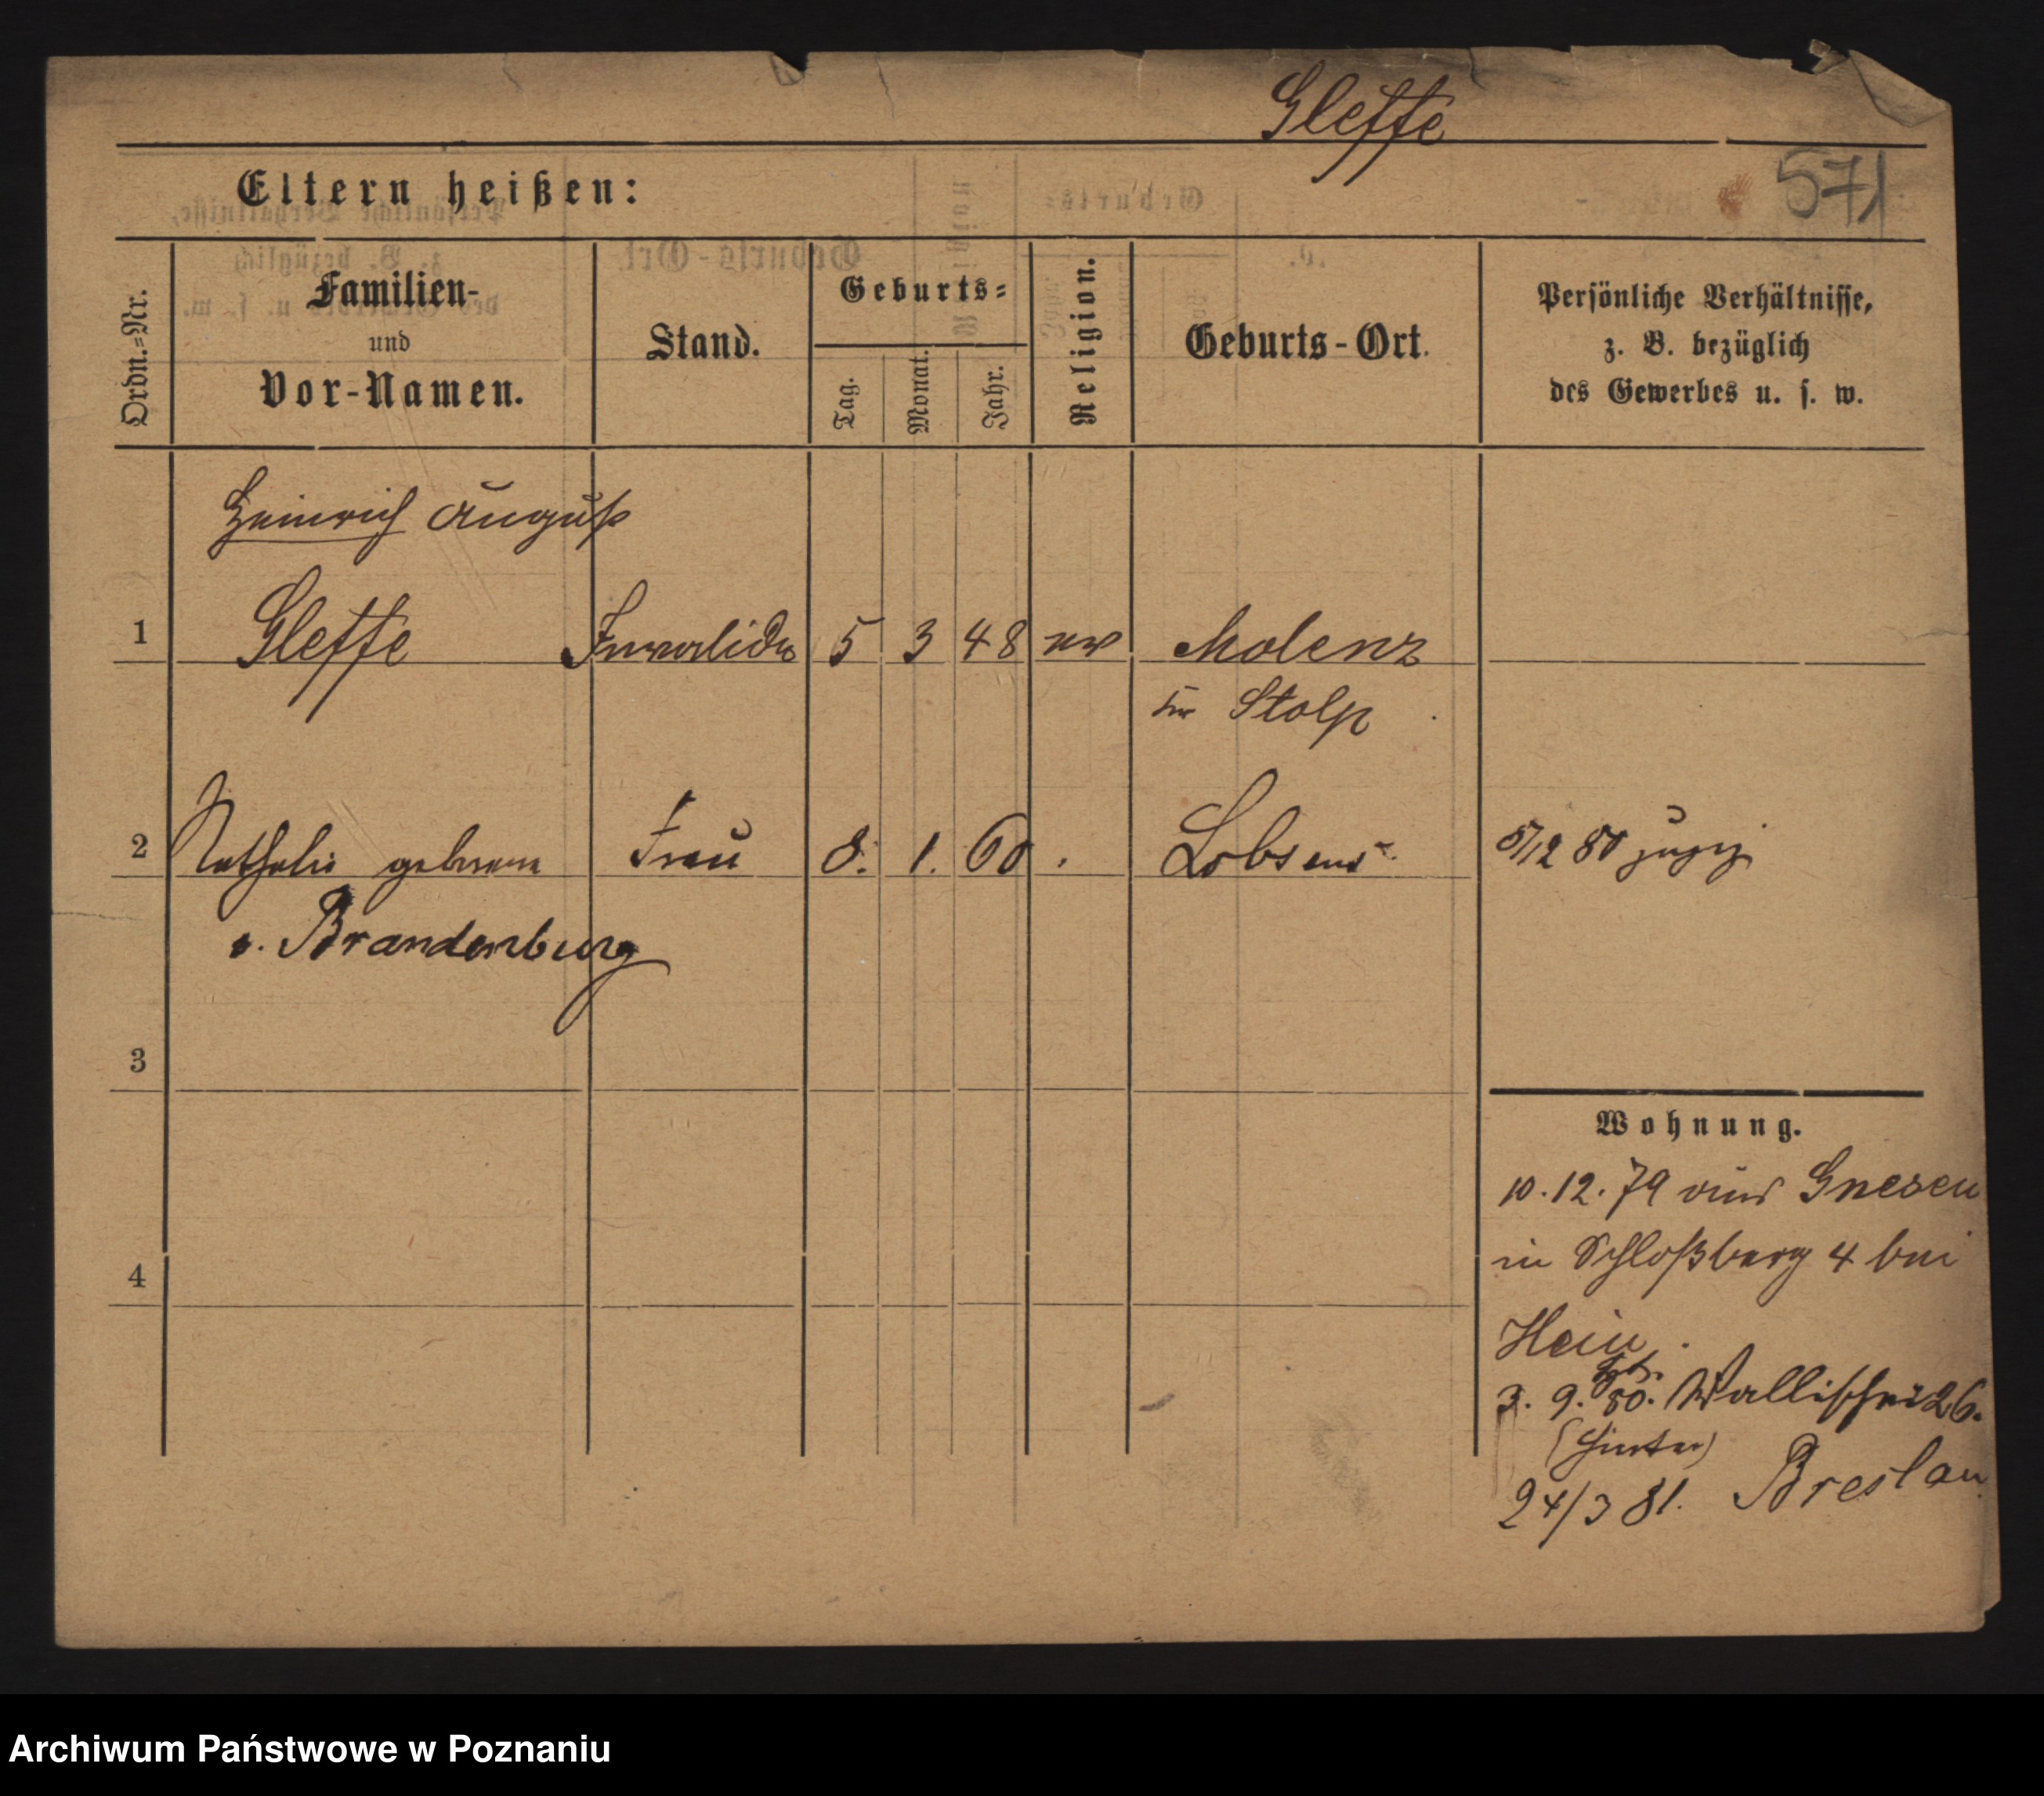 Gleffe
571
Eltern heißen:
Ordn.=Nr.
Familien-
und
Vor-Namen.
Stand.
Geburts=
Tag.
Monat.
Jahr.
Religion.
Geburts-Ort.
Persönliche Verhältnisse,
z. B. bezüglich
des Gewerbes u. s. w.
Heinrich August
1 Gleffe Invalide 5 3 48 ev Molenz
Stolp
2 Nathalie geborene Frau 8. 1. 60. Lobsens 5/12 80
v. Brandenburg
3
4
Wohnung.
10.12.79 aus Gnesen
in Schloßberg 4 bei
Hein.
3. 9. 80. Wallischei 26.
(hinter)
24/3 81. Breslau
Archiwum Państwowe w Poznaniu